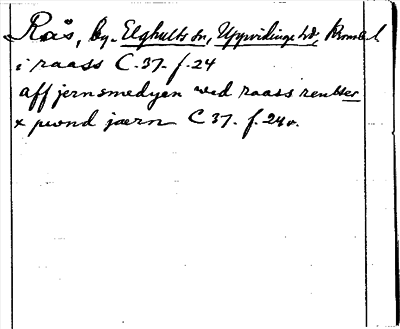 Rås, by. Elghults sn, Uppvidinge hd, Kronob. l
i raass C. 37. f. 24
aff jernsmedyen ved raass rentter
x pwnd jærn C 37. f. 24 v.